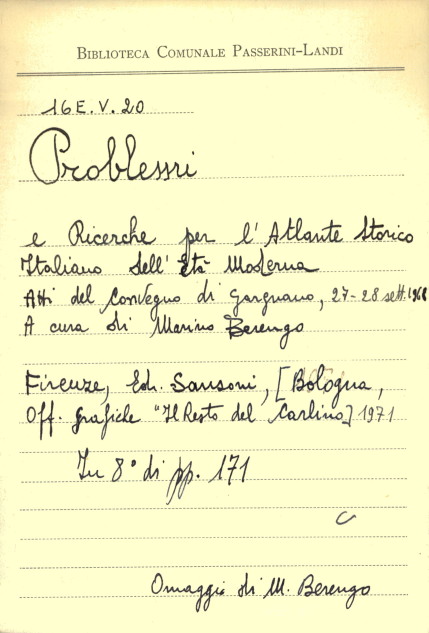 BIBLIOTECA COMUNALE PASSERINI-LANDI
16 E. V. 20
Problemi
e Ricerche per l'Atlante Storico
Italiano dell'Età Moderna
Atti del Convegno di Gargnano, 27-28 sett. 1968
A cura di Marino Berengo
Firenze, Ed. Sansoni, [Bologna,
Off. grafiche "Il Resto del Carlino] 1971
In 8° di pp. 171
C
Omaggio di M. Berengo